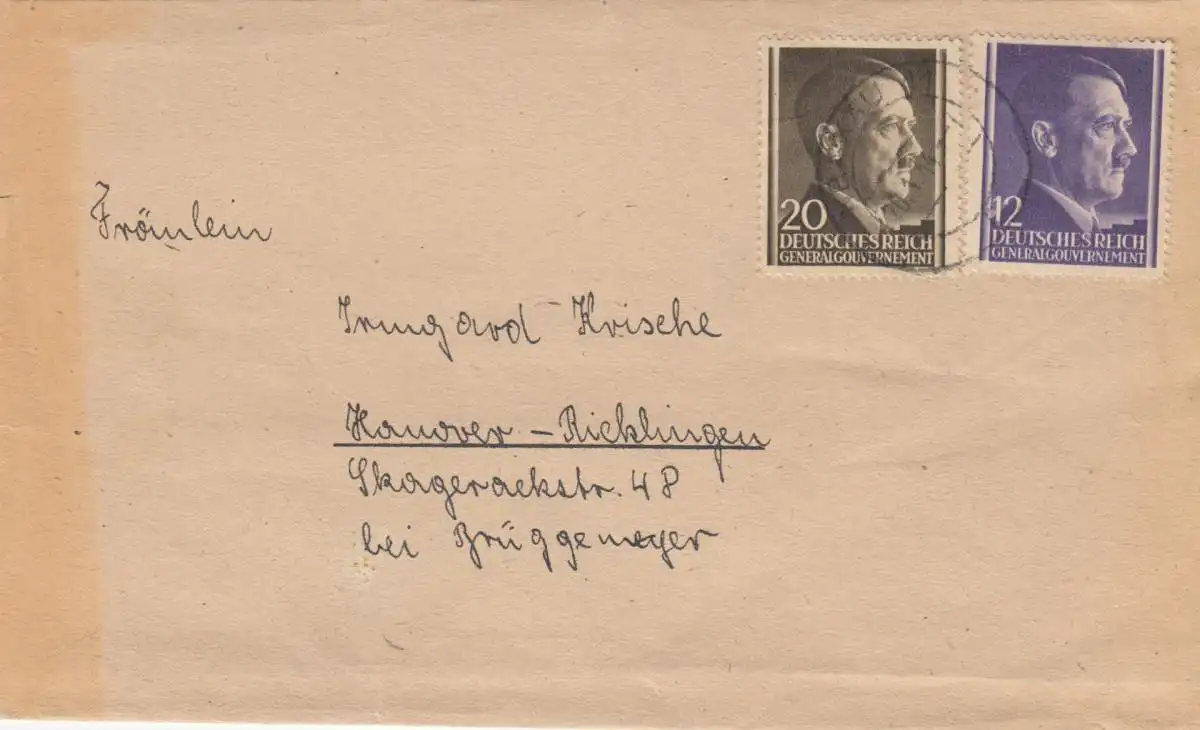 20
DEUTSCHES REICH
GENERALGOUVERNEMENT
12
DEUTSCHES REICH
GENERALGOUVERNEMENT
Fräulein
Irmgard Krische
Hanover - Ricklingen
Skagerackstr. 48
bei Brüggemeyer